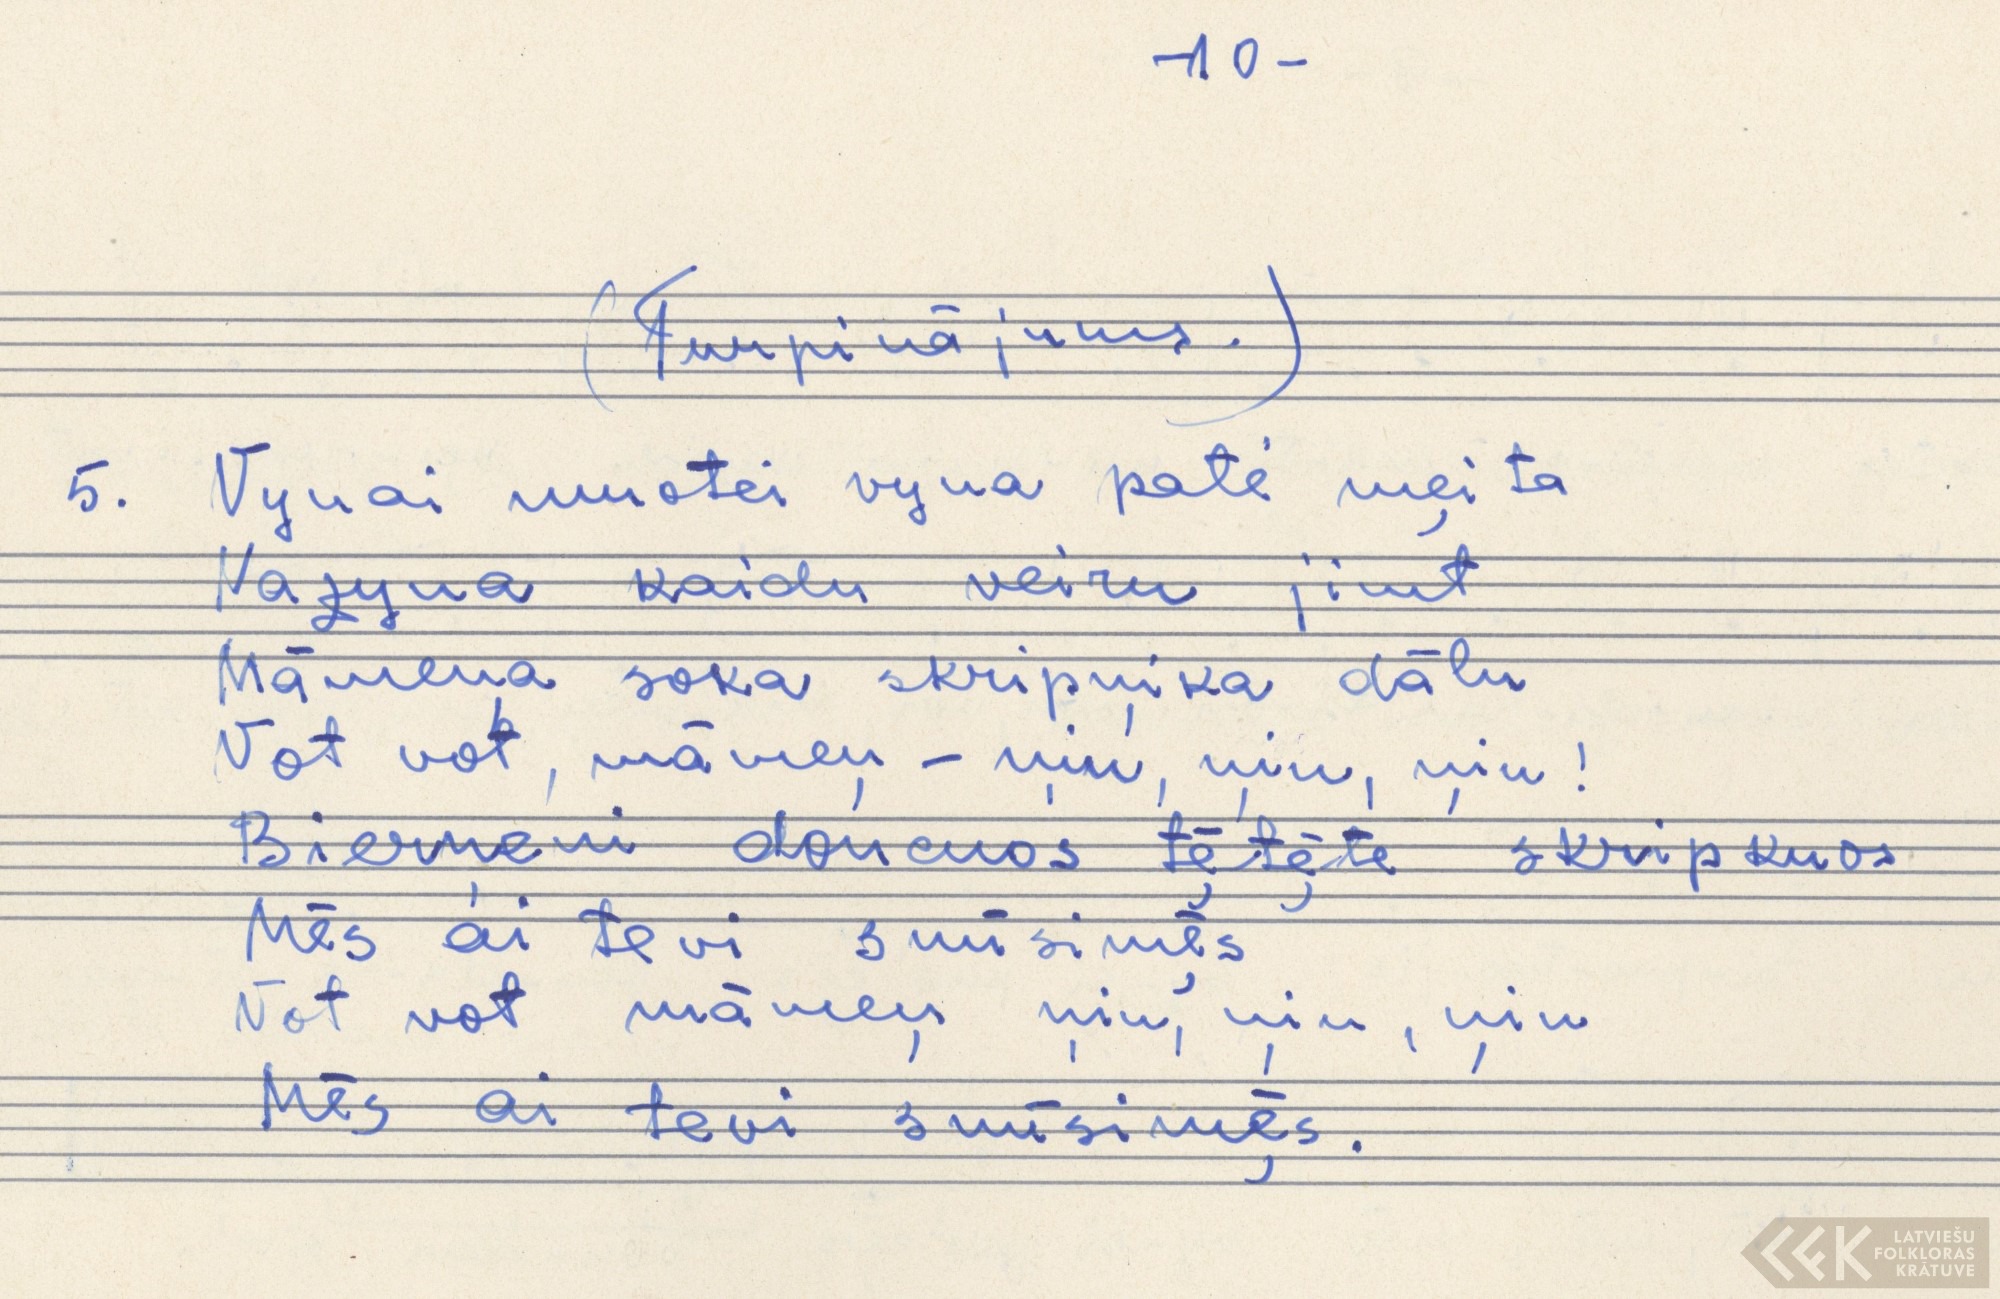 -10-
(Turpinājums.)
5. Vynai muotei vyna pate męita
Nazyna kaidu veiru jimt
Māmeņa soka skripņika dālu
Vot vot, māmeņ - ņiu, ņiu, ņiu!
Bierneni doncuos tę̄tę̄te skripkuos
Mēs ai tevi smīsimęs
Vot vot māmeņ ņiu, ņiu, ņiu
Mēs ai tevi smīsimę̄s.
LATVIEŠU
FOLKLORAS
KRĀTUVE